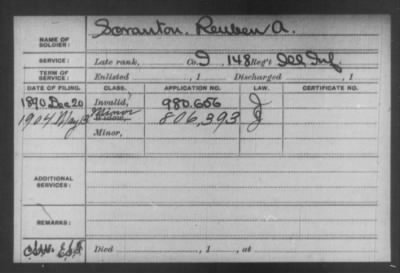 NAME OF SOLDIER: Scranton, Reuben A.
SERVICE: Late rank, Co. I, 148 Reg't Ill Inf.
TERM OF SERVICE: Enlisted , 1 Discharged , 1
DATE OF FILING. CLASS. APPLICATION NO. LAW. CERTIFICATE NO.
1890 Dec 20 Invalid, 980.606 J
1904 May Minor Widow, 806,393 J
Minor,
ADDITIONAL SERVICES:
REMARKS:
Died , 1 , at